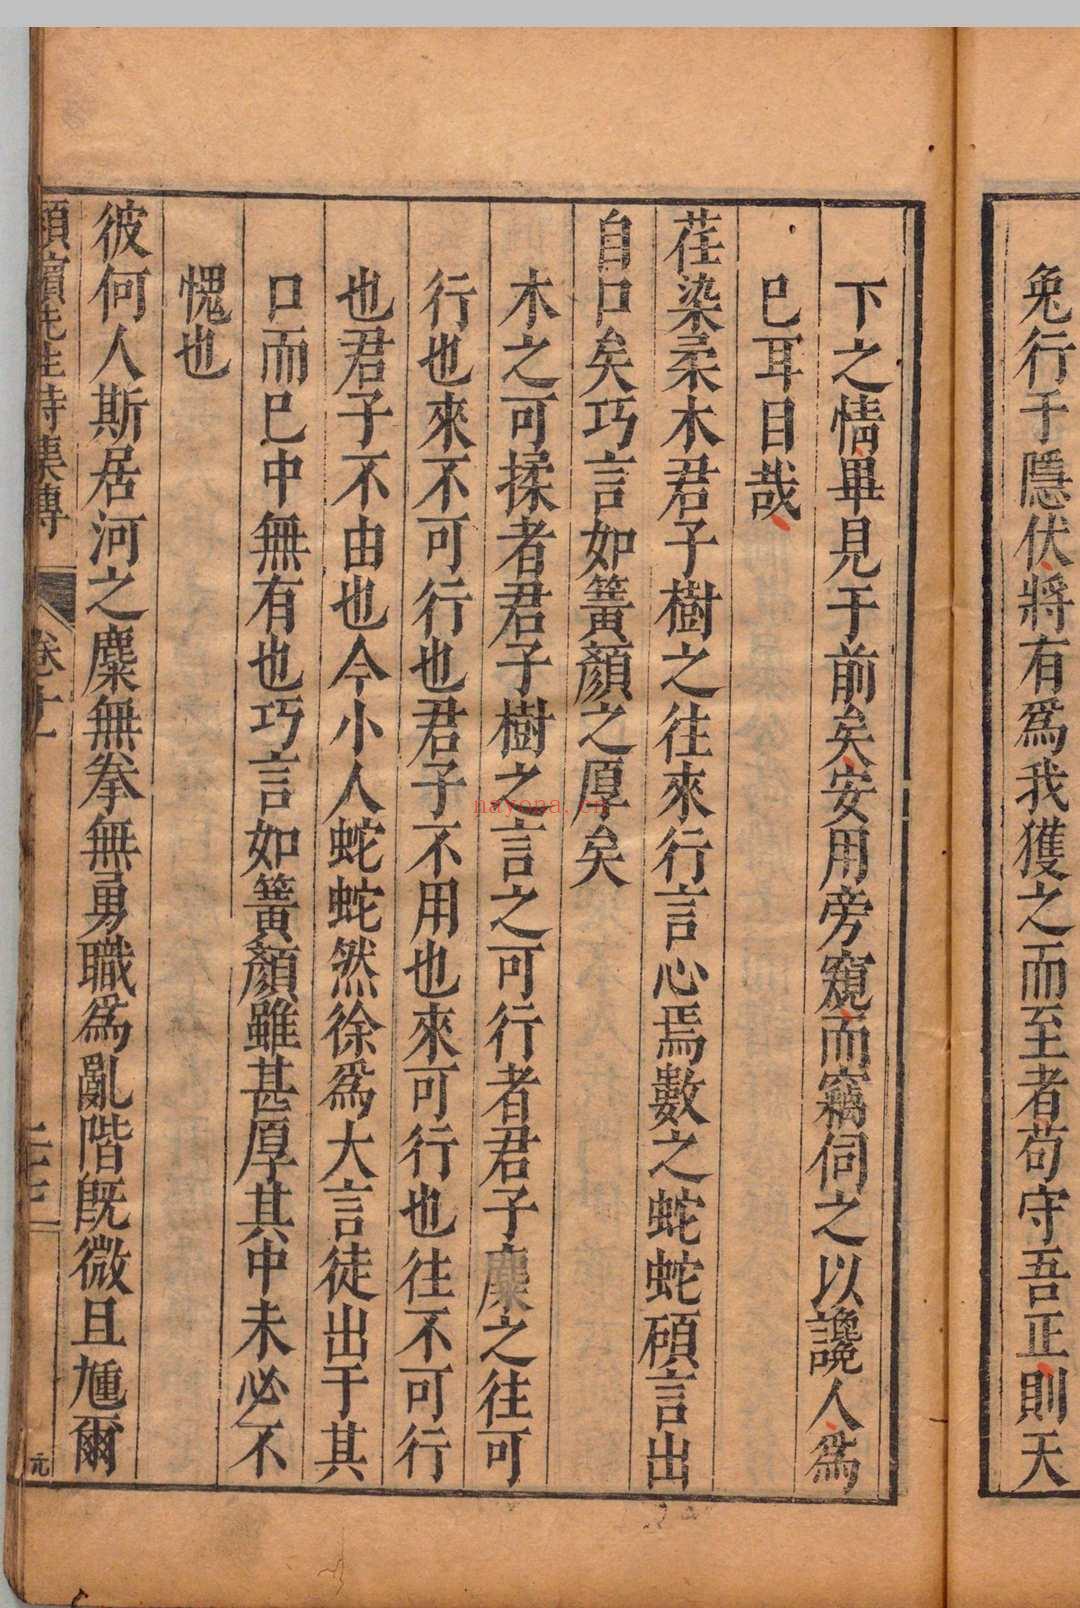 兔行于隱伏將有爲我獲之而至者苟守吾正則天
下之情畢見于前矣安用旁窺而竊伺之以讒人爲
已耳目哉
荏染柔木君子樹之往來行言心焉數之蛇蛇碩言出
自口矣巧言如簧顏之厚矣
木之可揉者君子樹之言之可行者君子麋之往可
行也來不可行也君子不用也來可行也往不可行
也君子不由也今小人蛇蛇然徐爲大言徒出于其
口而巳中無有也巧言如簧顏雖甚厚其中未必不
愧也
彼何人斯居河之麋無拳無勇職爲亂階旣微且尰爾
潁濱先生詩集傳
卷十一
元
nayona.cn